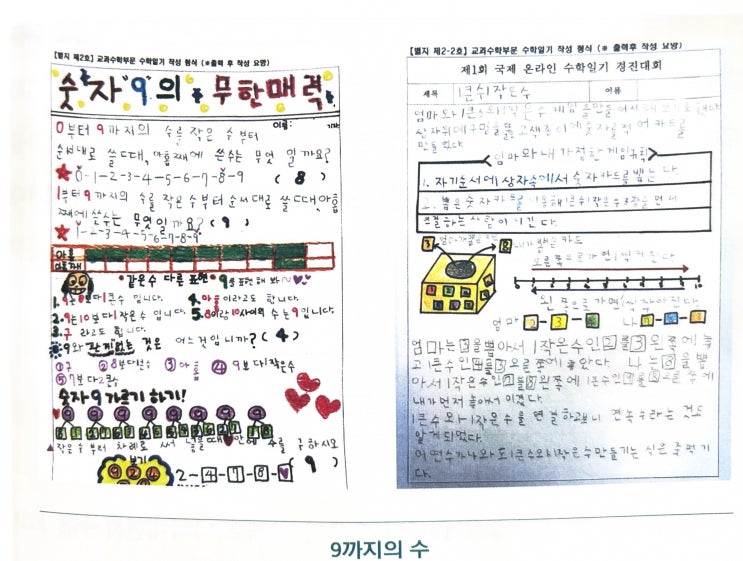 [별지 제2호] 교과수학부문 수학일기 작성 형식 (※출력후 작성 요망)
숫자 "9"의 무한매력
0부터 9까지의 수를 작은 수부터 이름:
순서대로 쓸때, 아홉째에 쓴수는 무엇 일까요?
0-1-2-3-4-5-6-7-8-9 ( 8 )
1부터 9까지의 수를 작은수부터 순서대로 쓸때, 아홉
째에 쓴수는 무엇일까요? ( 9 )
1-2-3-4-5-6-7-8-9
아홉
아홉째
같은수 다른 표현 9를 표현해 봐~
1. 9는 8보다 1큰수 입니다. 4. 아홉 이라고도 합니다.
2. 9는 10보다 1작은수 입니다. 5. 8이랑 10사이의 수는 9입니다.
3. 구 라고도 합니다.
9와 관계없는 것은 어느것 입니까? ( 4 )
① 구 ② 8보다 1큰수 ③ 아홉 ④ 9보다 1작은수
⑤ 7보다 2큰수
숫자 9 가르기 하기!
9 9 9 9 9 9 9 9
작은 수부터 차례로 써 넣을때 안에 수를 구하시오
보기
9 2 4
2-4-7-8- ( 9 )
[별지 제2-2호] 교과수학부문 수학일기 작성 형식 (※ 출력후 작성 요망)
제1회 국제 온라인 수학일기 경진대회
제목 1큰수 1작은수 이름
엄마와 1큰수와 1작은수 게임을
상자위에 구멍을 뚫고 색종이에 숫자를 적어 카드를
만들었다.
엄마와 내가 정한 게임규칙
1. 자기순서에 상자속에서 숫자카드를 뽑는다.
2. 뽑은 숫자카드를 이용해 1큰수 1작은수 3장을 먼저
연결하는 사람이 이긴다.
3 엄마가 뽑은 카드 8 내가 뽑은 카드
오른쪽으로 가면 1씩 커진다
왼쪽으로 가면 1씩 작아진다.
엄마 2-3-4 나 7-8-9
엄마는 3을 뽑아서 1작은수인 2를 3왼쪽에 놓
고 1큰수인 4를 3오른쪽에 놓았다. 나는 8을 뽑
아서 1작은수인 7를 8왼쪽에 1큰수인 9를 8오른쪽에
내가 먼저 놓아서 이겼다.
1큰수와 1작은수을 연결하고보니 연속수라는 것도
알게되었다.
어떤수가 나와도 1큰수와 1작은수 만들기는 식은 죽 먹기
다.
9까지의 수